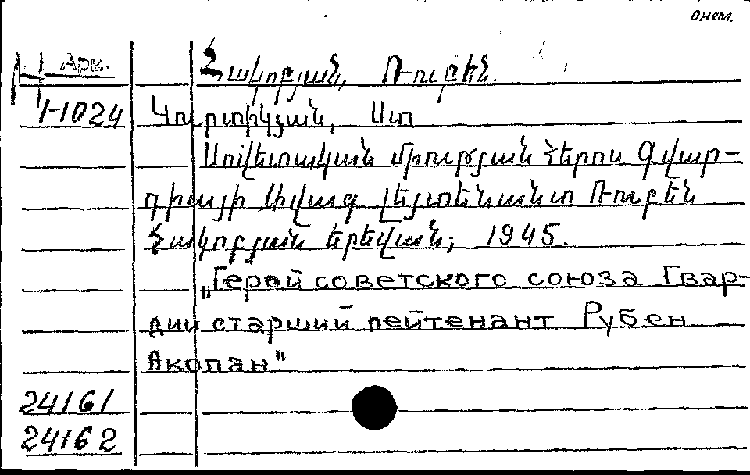 онем.
Арм.
Հակոբյան, Ռուբեն.
1-1024 Կուրտիկյան, Ստ
Սովետական միության հերոս Գվար-
դիայի Ավագ լեյտենանտ Ռուբեն
Հակոբյան Երեվան, 1945.
„Герой советского союза Гвар-
дии старший лейтенант Рубен
Акопян"
24161
24162